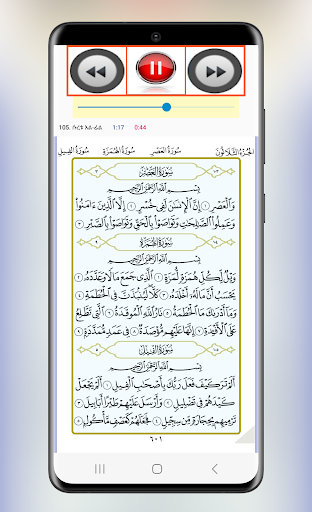 105. ሱረቱ አል-ፊል 1:17 0:44
الجُزْءُ الثَّلَاثُونَ سُورَةُ العَصْرِ سُورَةُ الهُمَزَةِ سُورَةُ الفِيلِ
سُورَةُ العَصْرِ
بِسْمِ اللَّهِ الرَّحْمَٰنِ الرَّحِيمِ
وَالْعَصْرِ ١ إِنَّ الْإِنسَٰنَ لَفِي خُسْرٍ ٢ إِلَّا الَّذِينَ ءَامَنُوا
وَعَمِلُوا الصَّٰلِحَٰتِ وَتَوَاصَوْا بِالْحَقِّ وَتَوَاصَوْا بِالصَّبْرِ ٣
سُورَةُ الهُمَزَةِ
بِسْمِ اللَّهِ الرَّحْمَٰنِ الرَّحِيمِ
وَيْلٌ لِّكُلِّ هُمَزَةٍ لُّمَزَةٍ ١ الَّذِي جَمَعَ مَالًا وَعَدَّدَهُ ٢
يَحْسَبُ أَنَّ مَالَهُ أَخْلَدَهُ ٣ كَلَّا لَيُنبَذَنَّ فِي الْحُطَمَةِ ٤
وَمَا أَدْرَىٰكَ مَا الْحُطَمَةُ ٥ نَارُ اللَّهِ الْمُوقَدَةُ ٦ الَّتِي تَطَّلِعُ
عَلَى الْأَفْـِٔدَةِ ٧ إِنَّهَا عَلَيْهِم مُّؤْصَدَةٌ ٨ فِي عَمَدٍ مُّمَدَّدَةٍ ٩
سُورَةُ الفِيلِ
بِسْمِ اللَّهِ الرَّحْمَٰنِ الرَّحِيمِ
أَلَمْ تَرَ كَيْفَ فَعَلَ رَبُّكَ بِأَصْحَٰبِ الْفِيلِ ١ أَلَمْ يَجْعَلْ
كَيْدَهُمْ فِي تَضْلِيلٍ ٢ وَأَرْسَلَ عَلَيْهِمْ طَيْرًا أَبَابِيلَ ٣
تَرْمِيهِم بِحِجَارَةٍ مِّن سِجِّيلٍ ٤ فَجَعَلَهُمْ كَعَصْفٍ مَّأْكُولٍ ٥
٦٠١